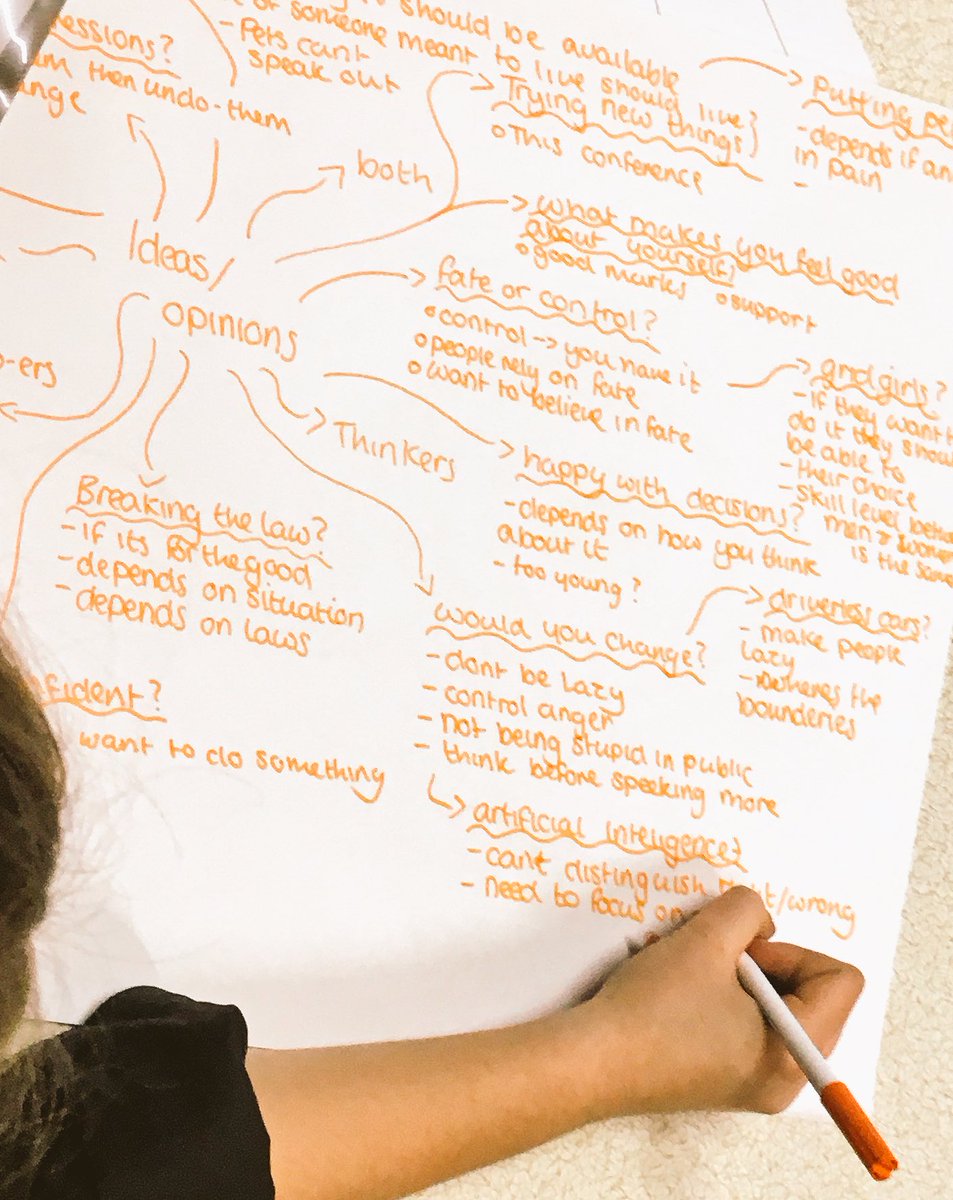 should be available
of someone meant to live should live?
- Pets can't
speak out
essions?
then undo-them
ange
both
Trying new things?
o This conference
Putting
- depends if
in pain
-
Ideas/
opinions
what makes you feel good
about yourself?
o good marks o support
fate or control?
o control -> you have it
o people rely on fate
o want to believe in fate
grid girls?
- if they want
do it they
be able to
- their choice
- skill level
men &
is the same
-ers
Thinkers
happy with decisions?
- depends on how you think
about it
- too young?
Breaking the law?
- if its for the good
- depends on situation
- depends on laws
would you change?
- dont be lazy
- control anger
- not being stupid in public
- think before speaking more
driverless cars?
- make people
lazy
- wheres the
bounderies
fident?
want to do something
artificial inteligence?
- cant distinguish /wrong
- need to focus on